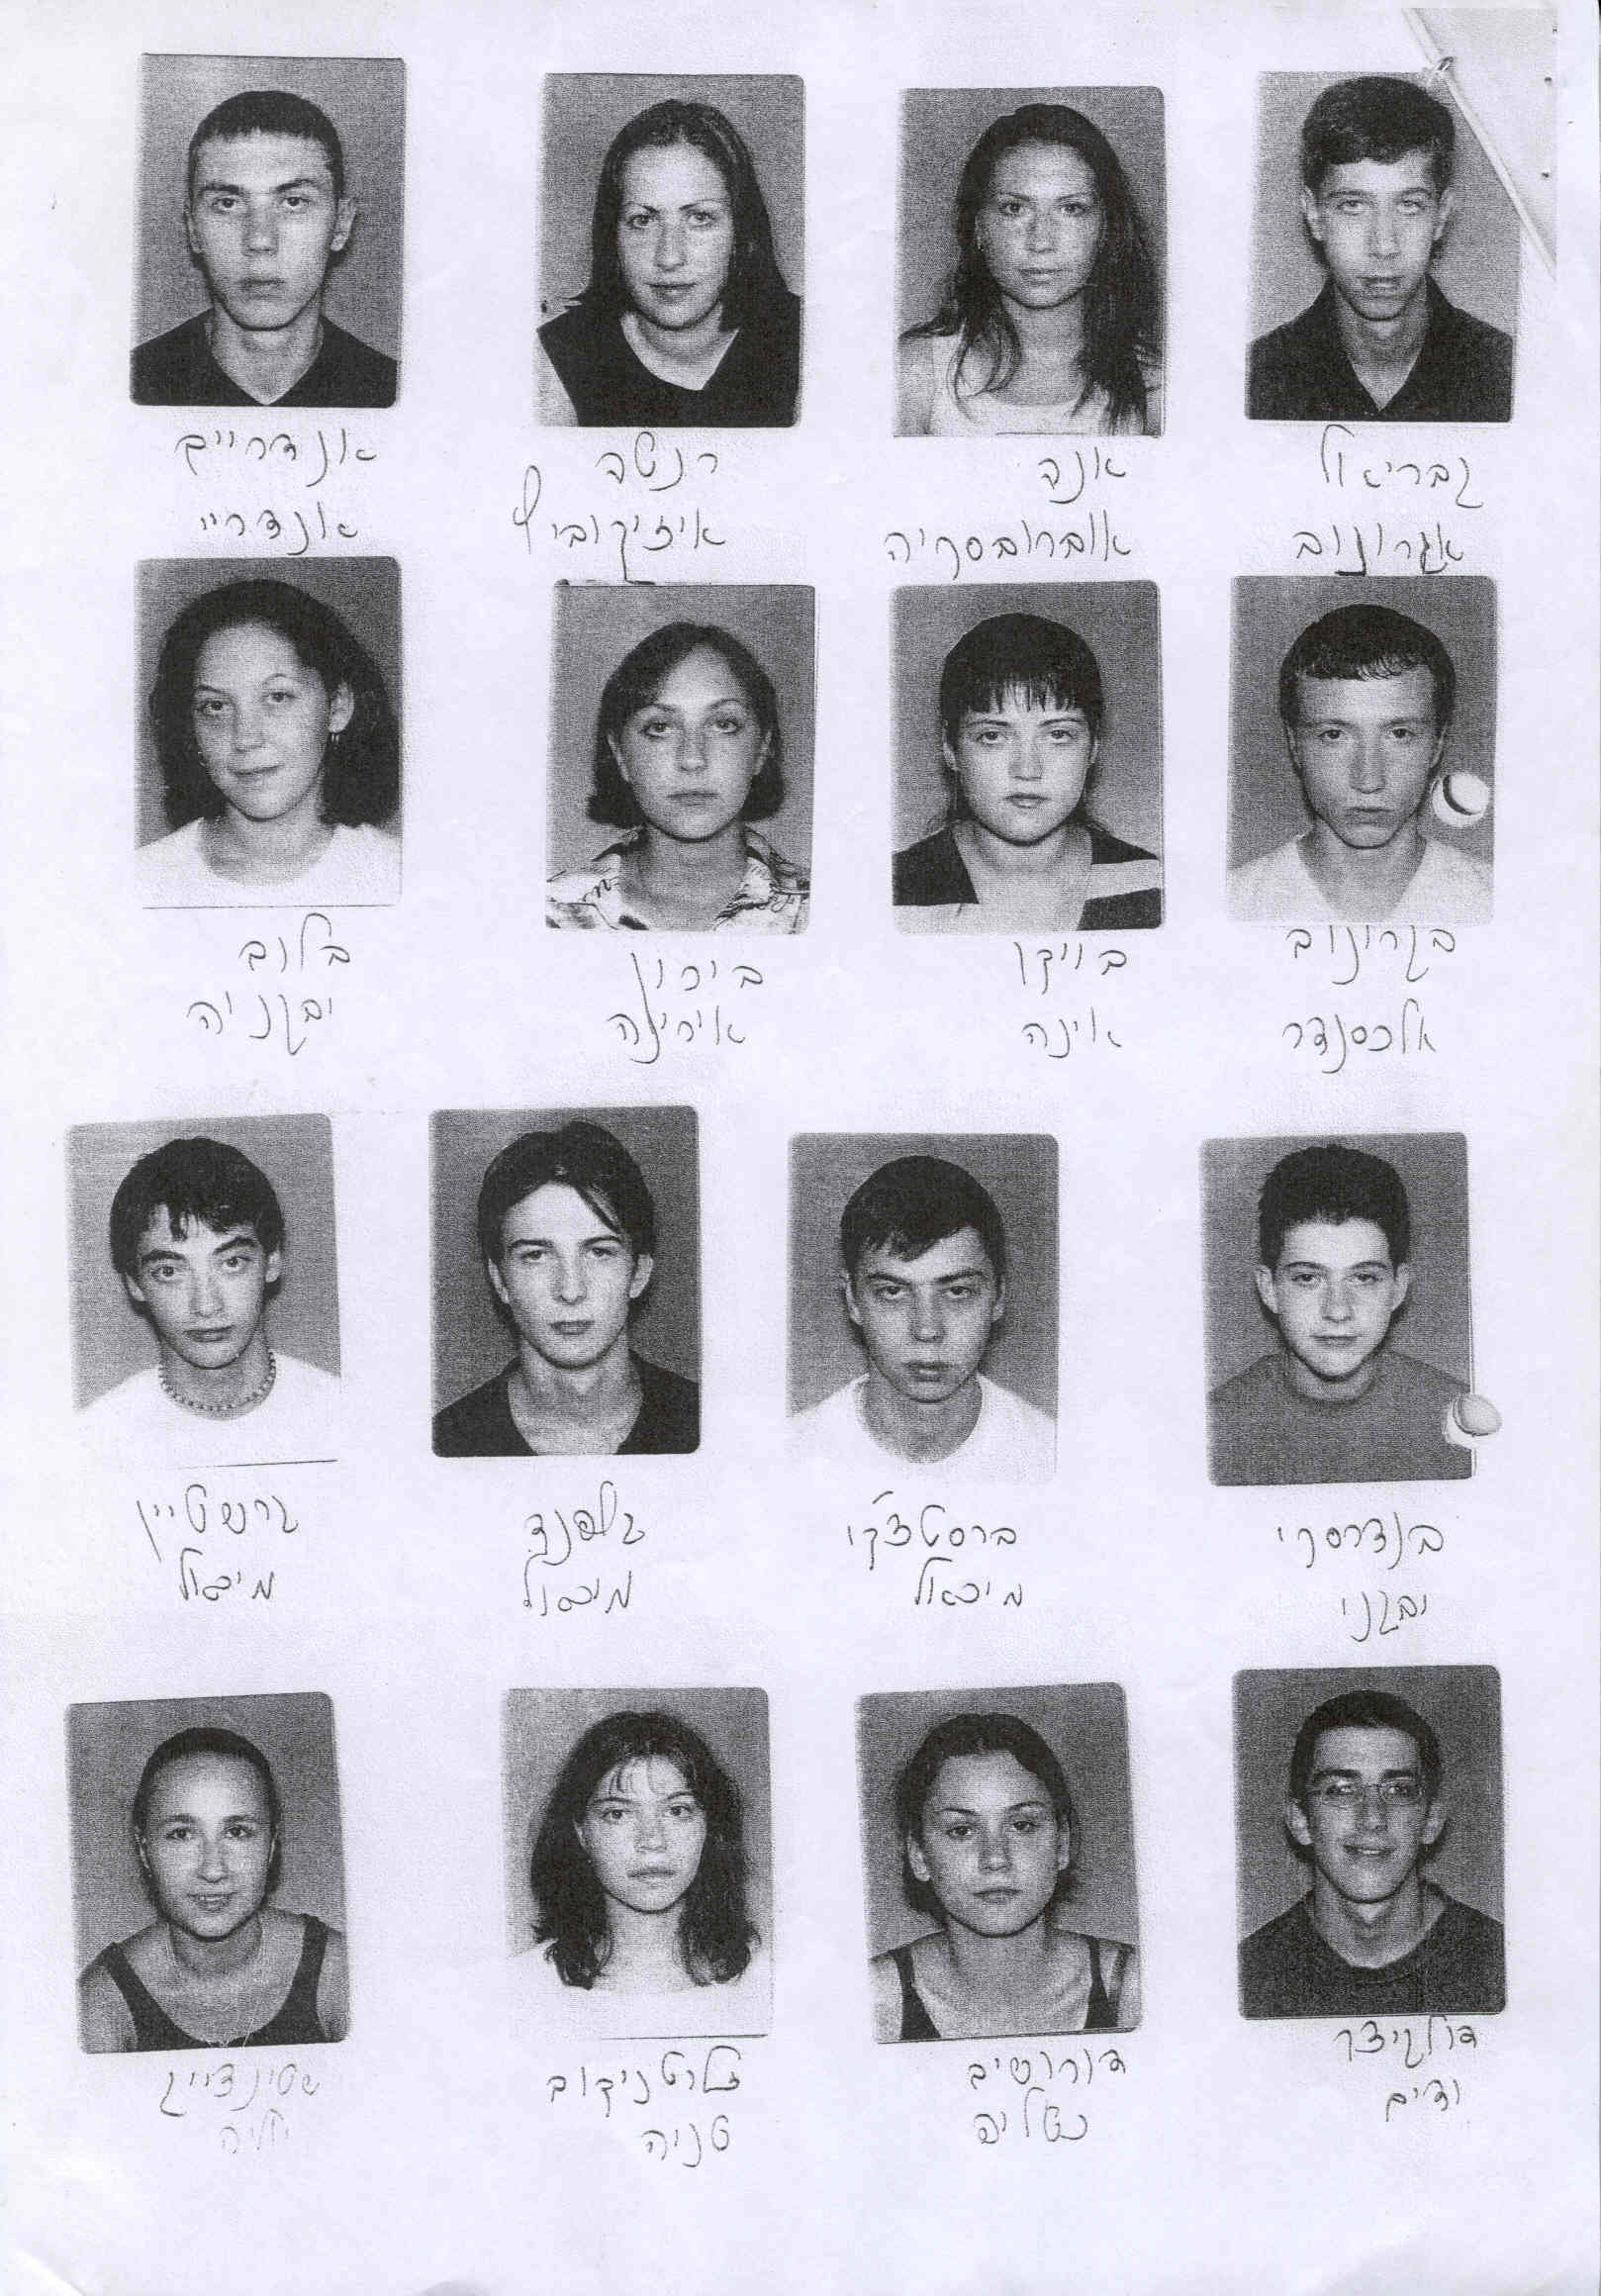 גבריאל
אגרונוב
אנה
אוברובסקיה
רנטה
איזיקוביץ
אנדרייס
אנדריי
בגרינוב
אלכסנדר
בויקו
אינה
בירון
אירינה
בלוב
יבגניה
בנדרסקי
יבגני
ברסטצקי
מיכאל
גלפנד
מיכאל
גרנשטיין
מיכאל
דולגיצר
ודים
דורושיב
נטליה
זלוטניקוב
טניה
שטינדייג
יוליה